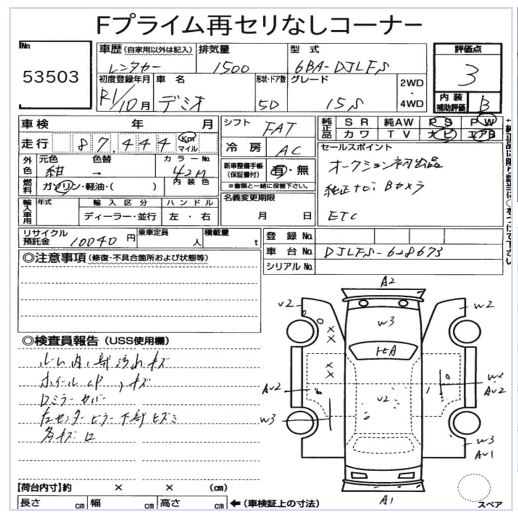 Fプライム再セリなしコーナー
No.
53503
車歴 (自家用以外は記入) 排気量 型式
レンタカー 1500 6BA-DJLFS
初度登録年月 車名 形状・ドア数 グレード
R1/10月 デミオ 5D 15S
2WD
・
4WD
評価点
3
内装
補助評価 B
車検 年 月
走行 87,444 Km マイル
外色 元色 色替 カラーNo.
紺 → 42M
燃料 ガソリン・軽油・( ) 内装色
輸入車用 年式 輸入区分 ハンドル
ディーラー・並行 左・右
シフト FAT
冷房 AC
新車整備手帳 (保証書含む) 有・無
※書類と一緒に保管下さい。
名義変更期限
月 日
純正品 SR 純AW PS PW
カワ TV ナビ エアB
セールスポイント
オークション初出品
純正ナビ Bカメラ
ETC
リサイクル預託金 10040円 乗車定員 人 積載量 t
登録No.
車台No. DJLFS-628673
シリアルNo.
◎注意事項 (修復・不具合箇所および状態等)
◎検査員報告 (USS使用欄)
ルーム内1部汚れキズ
Dミラーカバー
左センターピラー下部ヒズミ
各キズ
A2
V2
W2
W3
XX
XX
W3
V2
W3
AV2
AV1
A1
スペア
【荷台内寸】約 × × (cm)
長さ cm 幅 cm 高さ cm ←(車検証上の寸法)